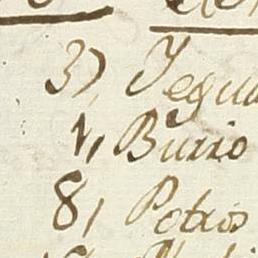 3) Yegua
1, Burro
8, Potros